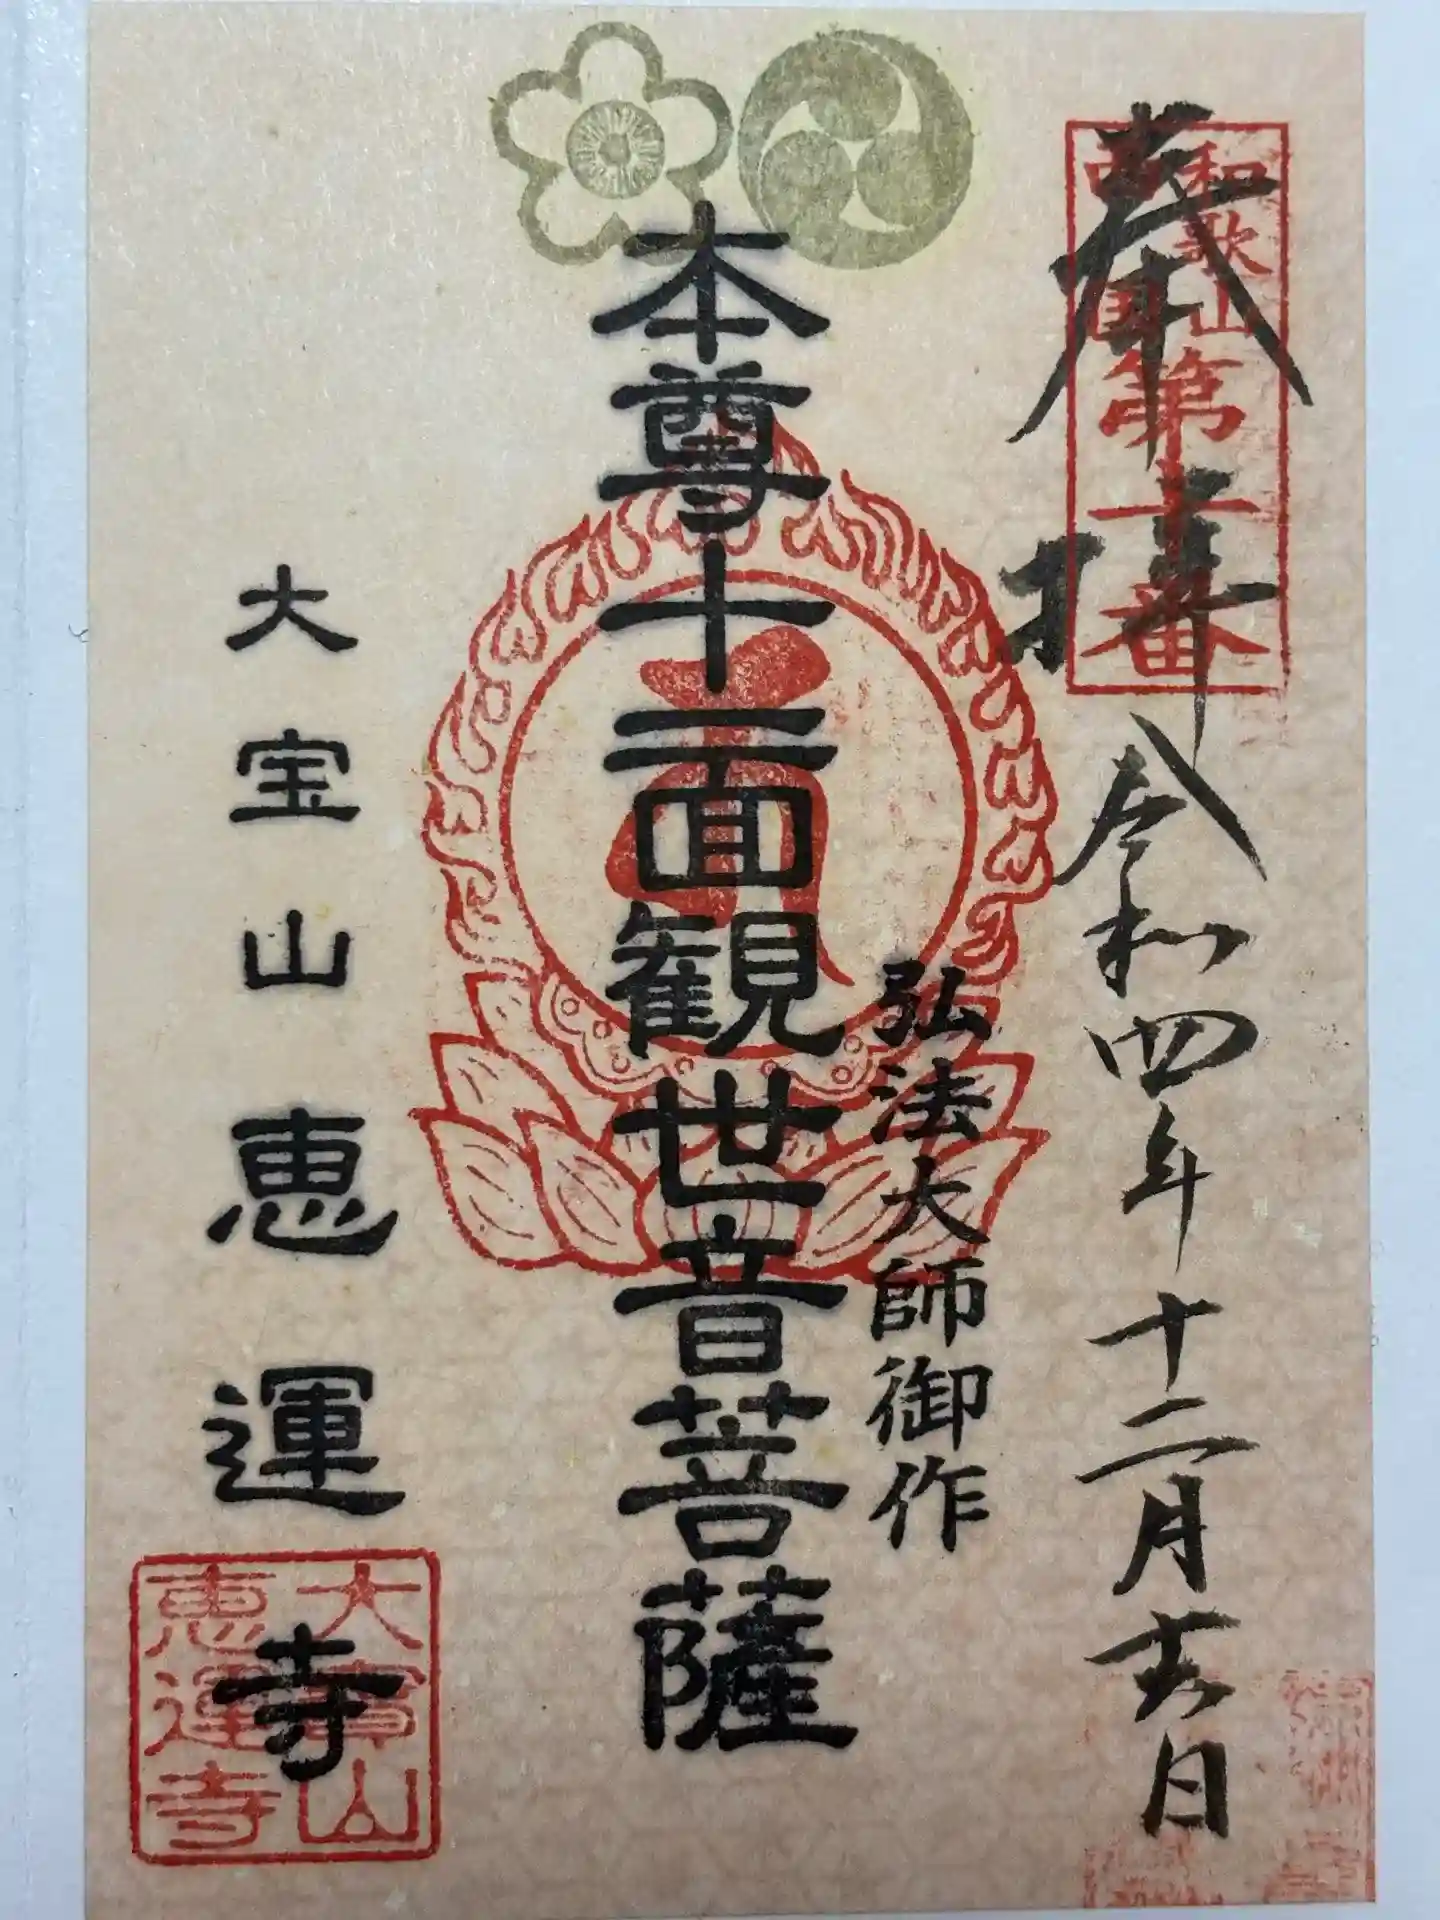 奉拝
和歌山
西国
第十番
令和四年十二月吉日
弘法大師御作
本尊十一面観世音菩薩
大宝山恵運寺
大寶山
恵運寺